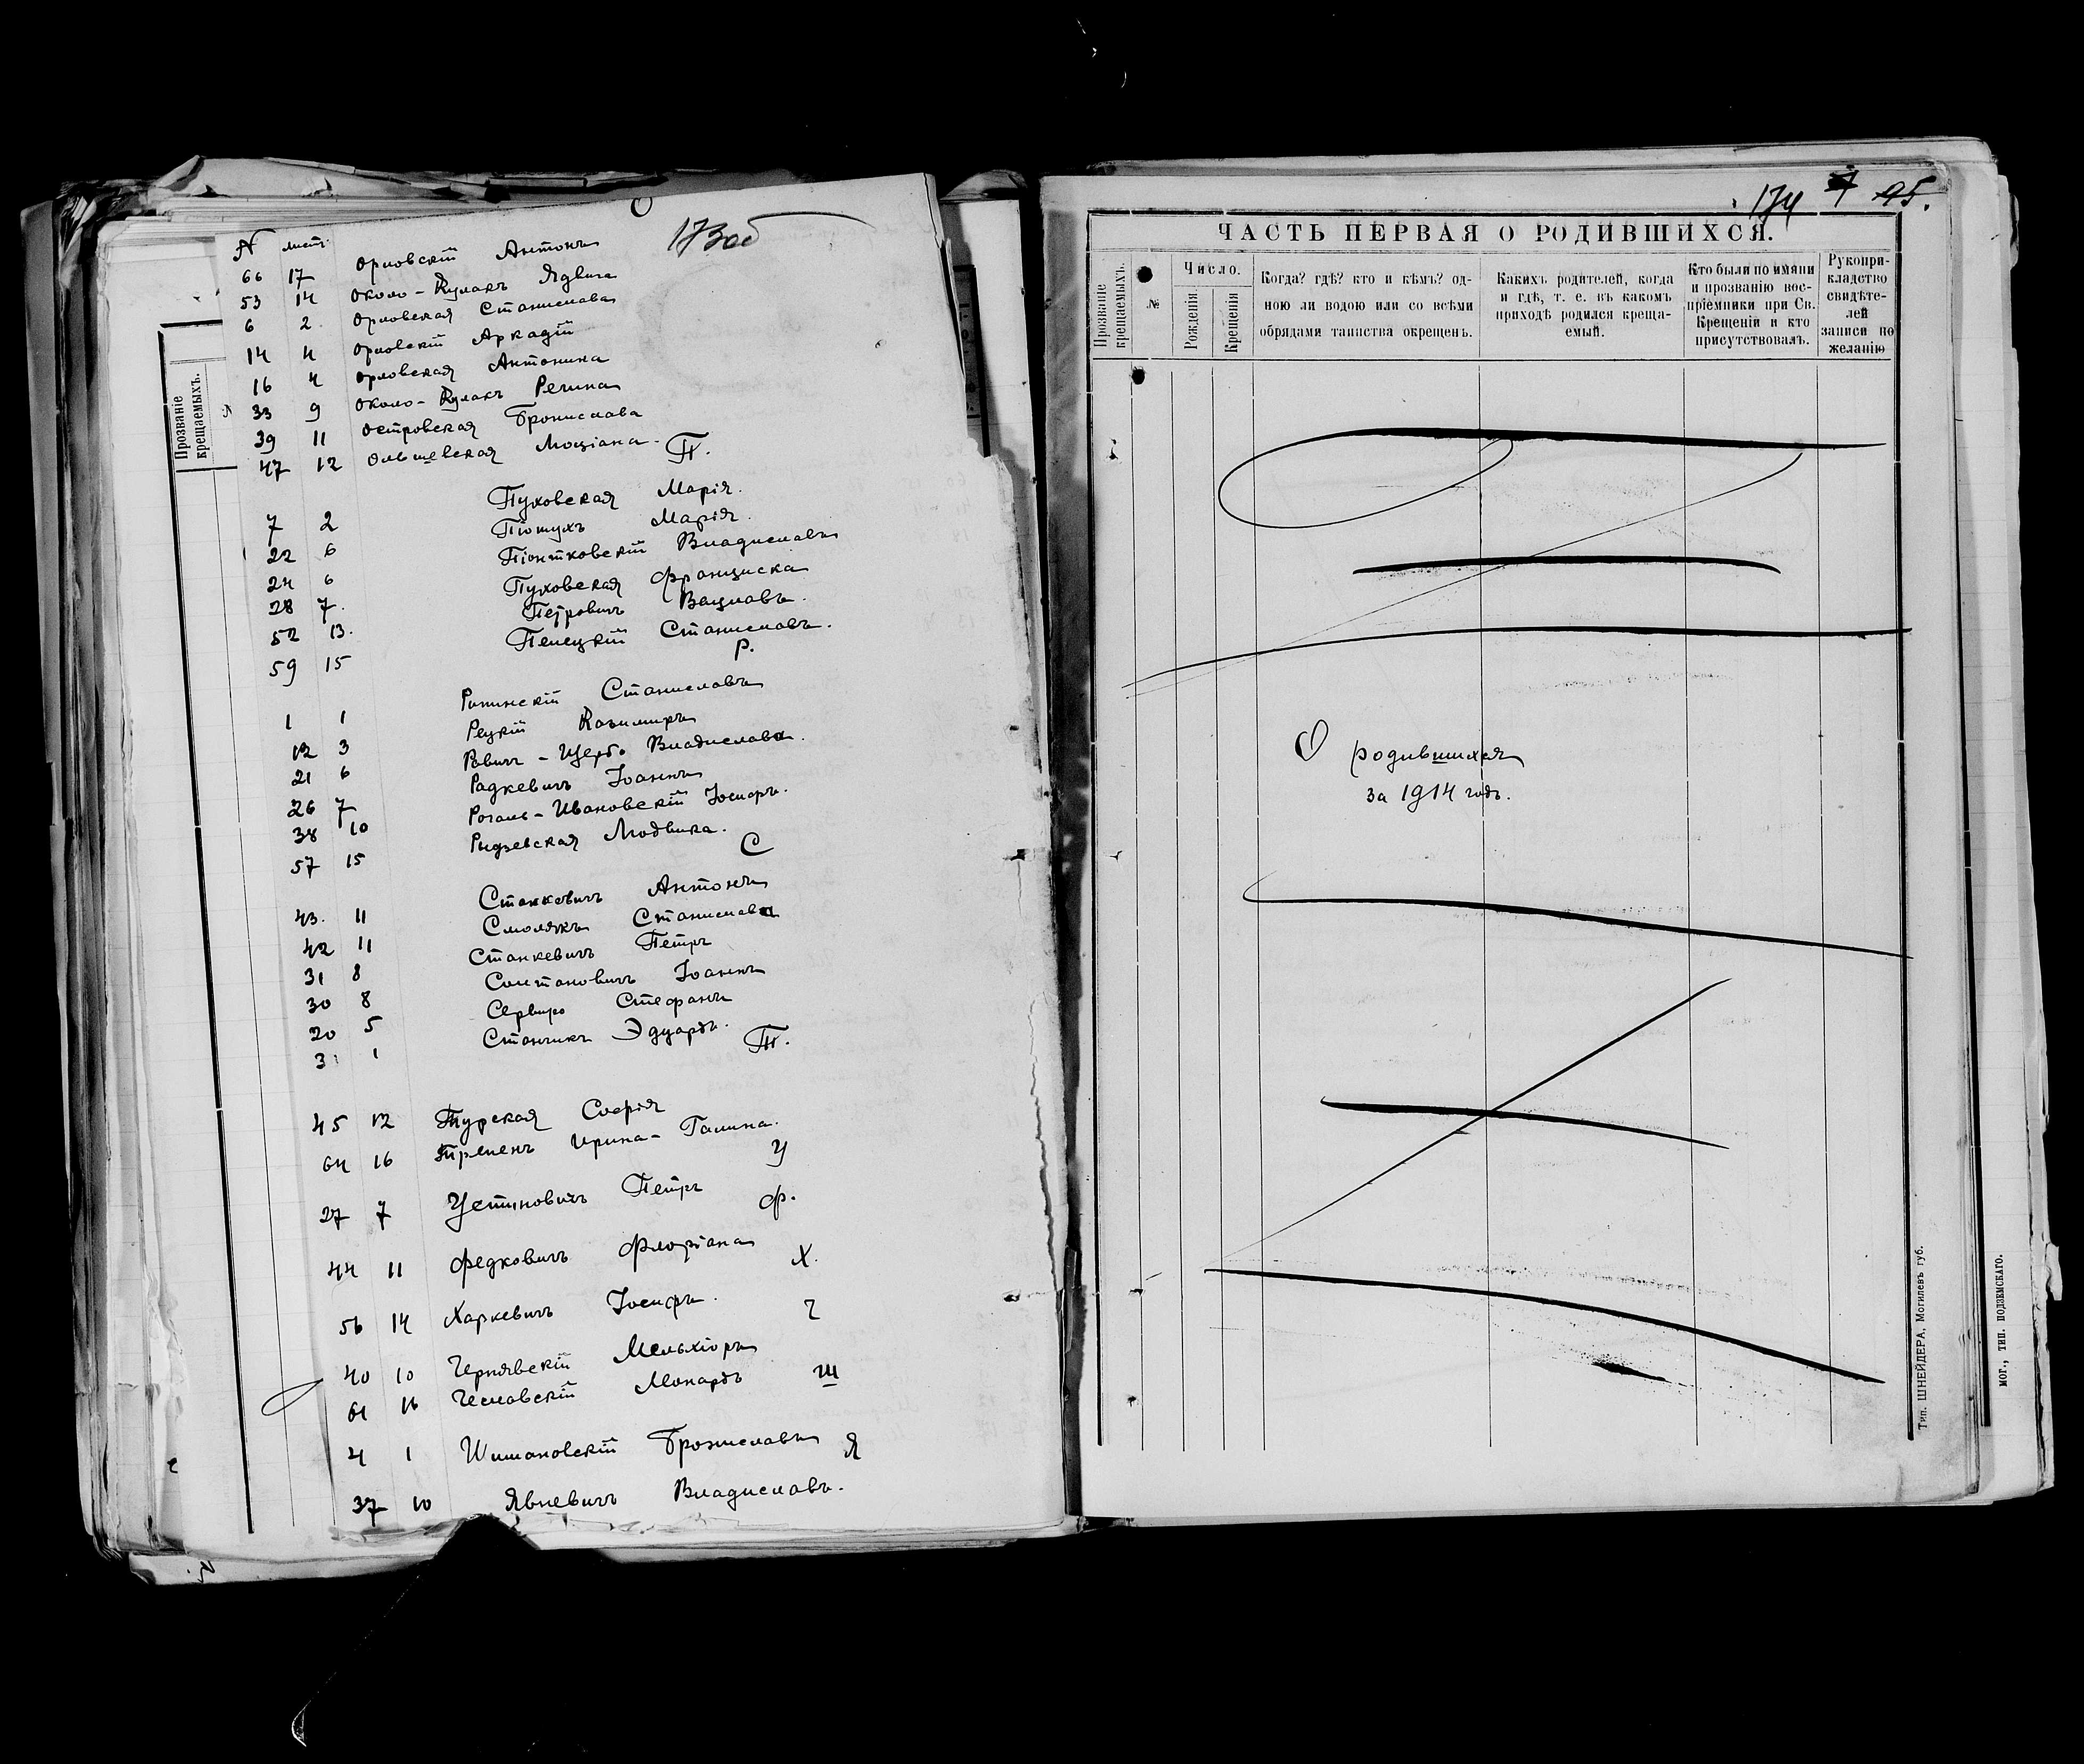 О
173об
№ лист.
66 17 Орловскій Антонъ
53 14 Около-Кулакъ Ядвига
6 2 Орловская Станислава
14 4 Орловскій Аркадій
16 4 Орловская Антонина
33 9 Около-Кулакъ Регина
39 11 Островская Бронислава
47 12 Ольшевская Моціана
П.
7 2 Пуховская Марія.
22 6 Пютухъ Марія.
24 6 Піонтковскій Владиславъ
28 7. Пуховская Франциска
52 13. Петровичъ Вацлавъ.
59 15 Пенецкій Станиславъ.
Р.
1 1 Рыпинскій Станиславъ
12 3 Рецкій Казимиръ
21 6 Ровичъ-Щерб. Владислава.
26 7 Радкевичъ Іоаннъ
38 10 Рогаль-Ивановскій Іосифъ.
57 15 Рыдзевская Людвика.
С
43. 11 Станкевичъ Антонъ
42 11 Смолякъ Станислава
31 8 Станкевичъ Петръ
30 8 Солтановичъ Іоаннъ
20 5 Сервиро Стефанъ
3 1 Станчикъ Эдуардъ.
Т.
45 12 Турская Софія
64 16 Тремень Ирина-Галина.
У
27 7 Устиновичъ Петръ
Ф.
44 11 Федковичъ Флоріана
Х.
56 14 Харкевичъ Іосифъ.
Ч
40 10 Чернявскій Мельхіоръ
61 16 Чеславскій Монардъ
Ш
4 1 Шимановскій Брониславъ
Я
37 10 Явневичъ Владиславъ.
Прозваніе крещаемыхъ.
174 7 95.
ЧАСТЬ ПЕРВАЯ О РОДИВШИХСЯ.
Прозваніе крещаемыхъ.
№
Число.
Рожденія.
Крещенія
Когда? гдѣ? кто и кѣмъ? од-
ною ли водою или со всѣми
обрядами таинства окрещенъ.
Какихъ родителей, когда
и гдѣ, т. е. въ какомъ
приходѣ родился креща-
емый.
Кто были по имяни
и прозванію вос-
пріемники при Св.
Крещеніи и кто
присутствовалъ.
Рукопри-
кладство
свидѣте-
лей
записи по
желанію
О родившихся
за 1914 годъ.
Тип. ШНЕЙДЕРА, Могилевъ губ.
МОГ., ТИП. ПОДЗЕМСКАГО.